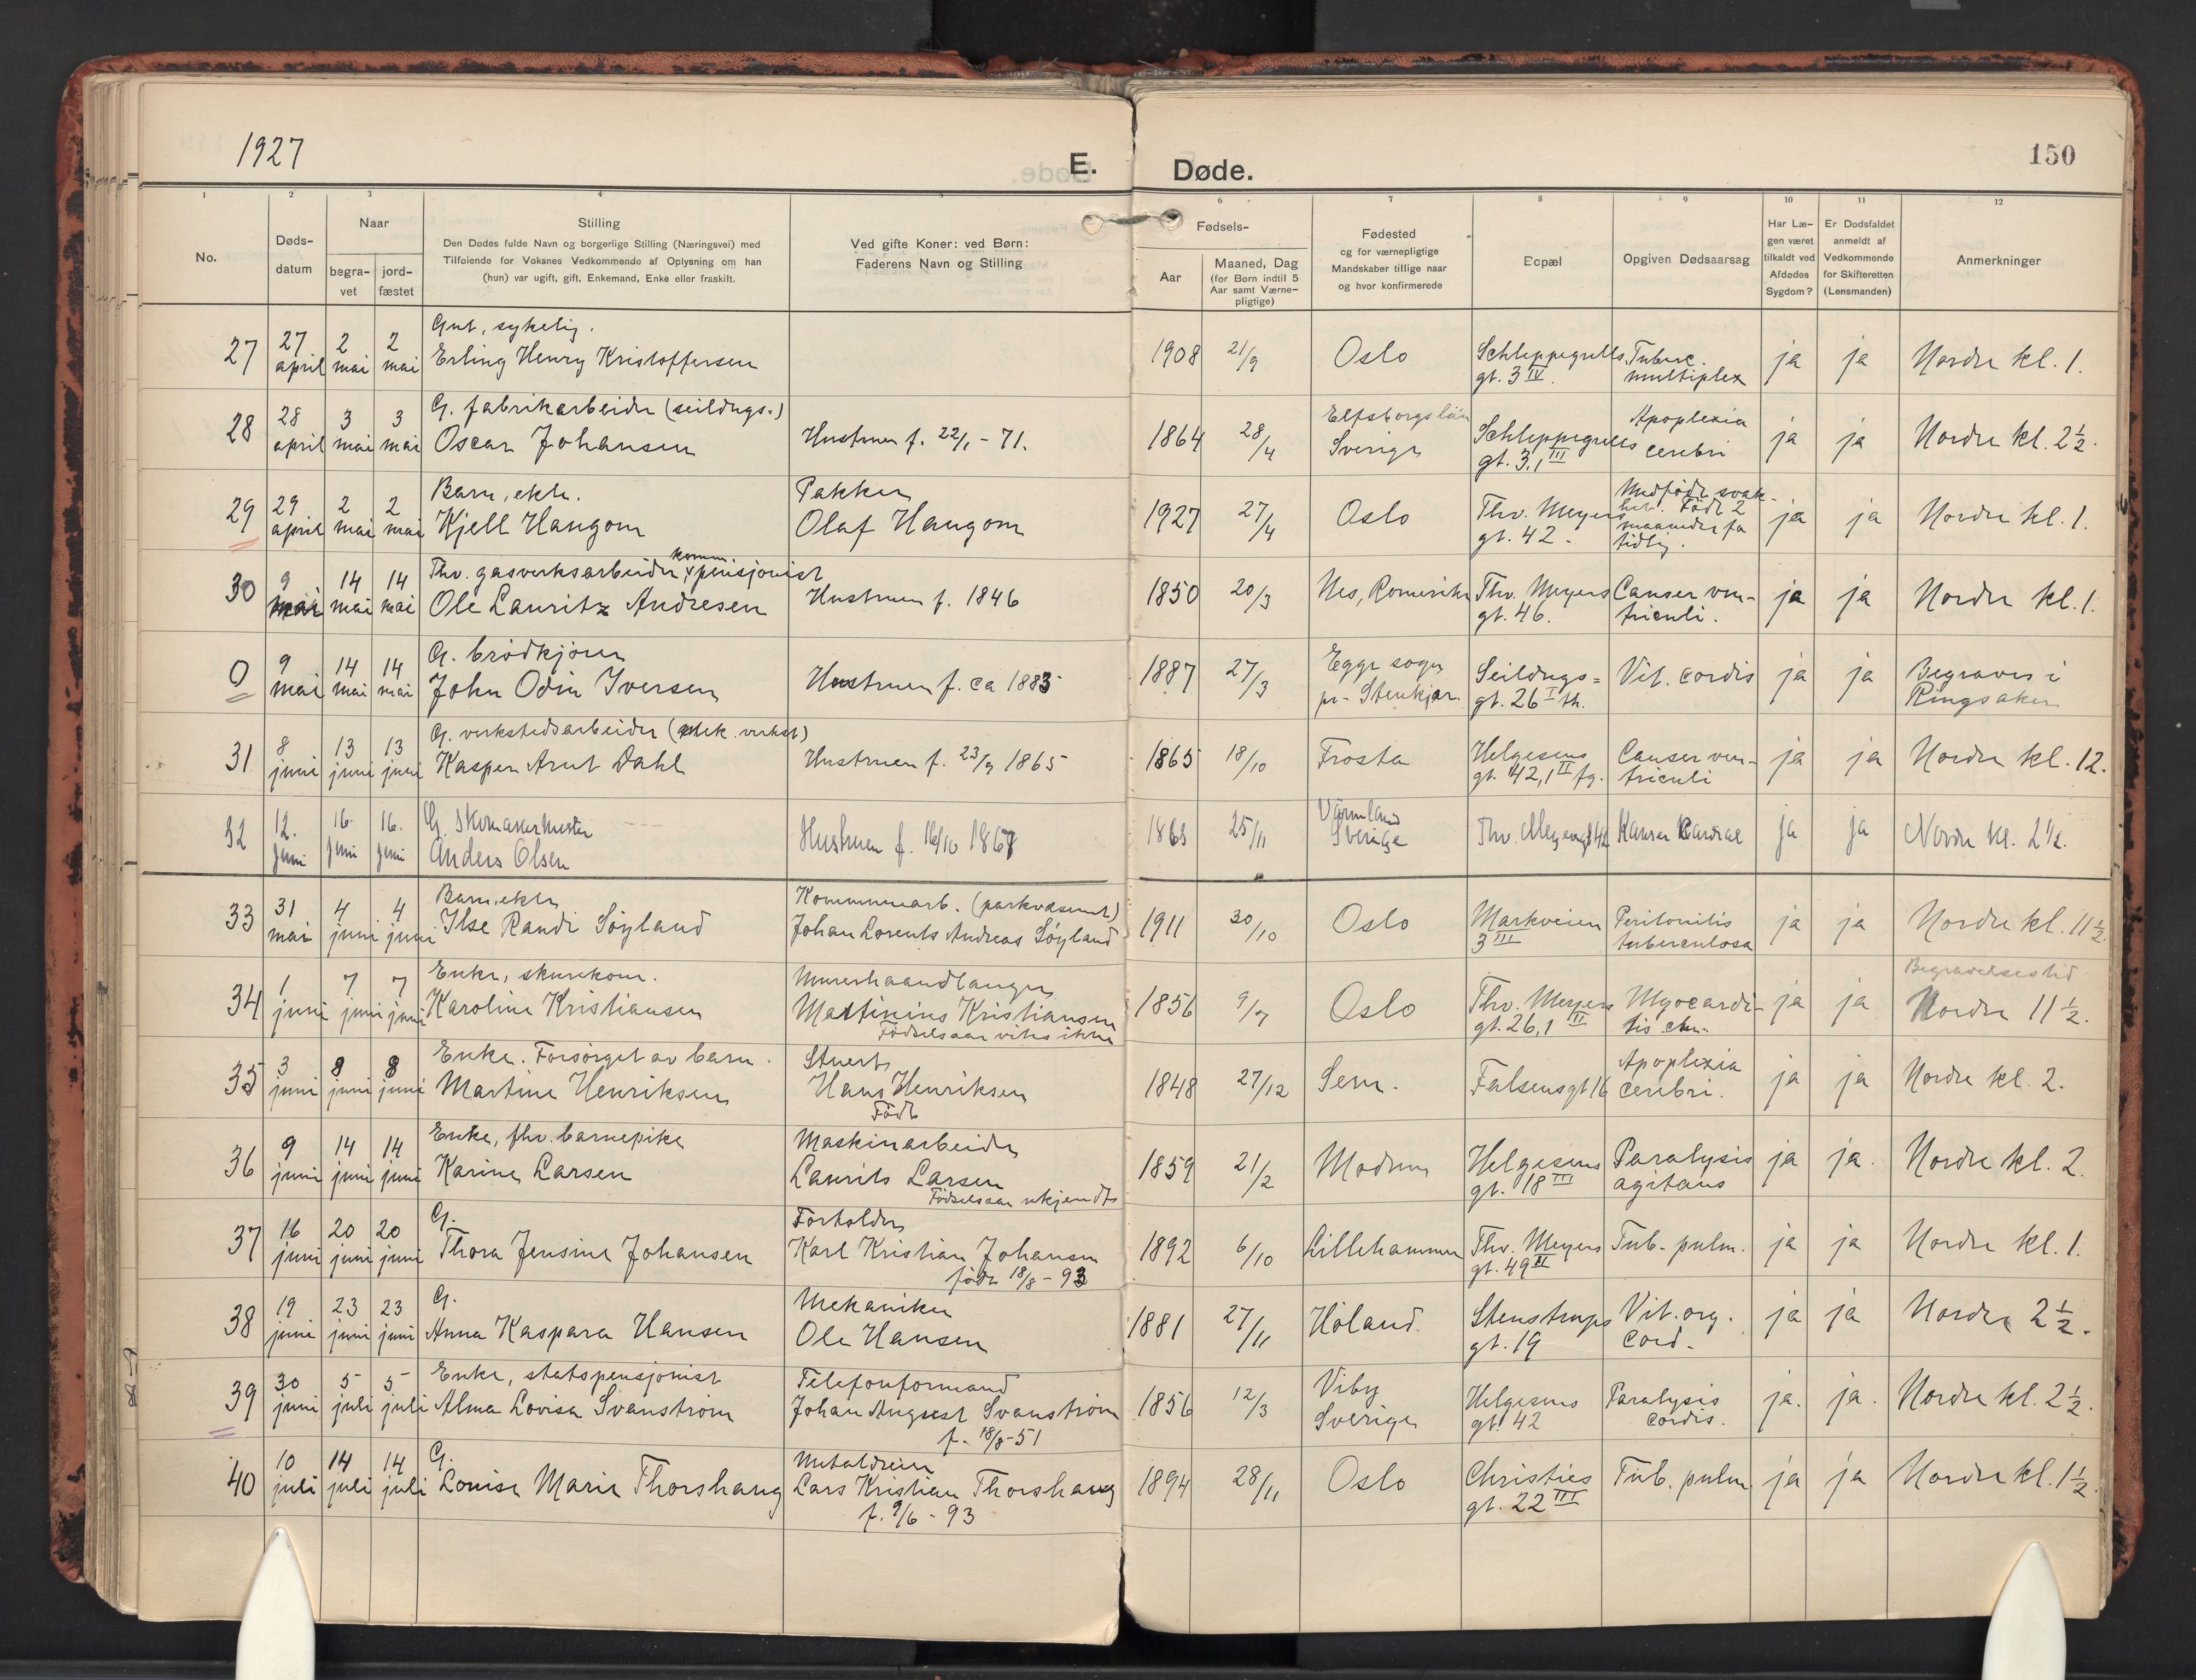 1927
E.
Døde.
150
1
2
3
4
5
6
7
8
9
10
11
12
No.
Døds-
datum
Naar
begra-
vet
jord-
fæstet
Stilling
Den Dødes fulde Navn og borgerlige Stilling (Næringsvei) med
Tilføiende for Voksnes Vedkommende af Oplysning om han
(hun) var ugift, gift, Enkemand, Enke eller fraskilt.
Ved gifte Koner: ved Børn:
Faderens Navn og Stilling
Fødsels-
Aar
Maaned, Dag
(for Børn indtil 5
Aar samt Værne-
pligtige)
Fødested
og for værnepligtige
Mandskaber tillige naar
og hvor konfirmerede
Bopæl
Opgiven Dødsaarsag
Har Læ-
gen været
tilkaldt ved
Afdødes
Sygdom?
Er Dødsfaldet
anmeldt af
Vedkommende
for Skifteretten
(Lensmanden)
Anmerkninger
27
27 april
2 mai
2 mai
Gut, sykelig.
Erling Henry Kristoffersen
1908
21/9
Oslo
Schleppegrells
gt. 3 IV.
Tuberc.
multiplex
ja
ja
Nordre kl. 1.
28
28 april
3 mai
3 mai
G. fabrikarbeider (seildugs-)
Oscar Johansen
Hustruen f. 22/1 - 71.
1864
28/4
Elfsborgs län
Sverige
Schleppegrells
gt. 3,1 III
Apoplexia
cerebri
ja
ja
Nordre kl. 2 ½.
29
29 april
2 mai
2 mai
Barn, ekte.
Kjell Haugom
Pakker
Olaf Haugom
1927
27/4
Oslo
Thv. Meyers
gt. 42.
Medfødt svak-
het. Født 2
maaneder for
tidlig.
ja
ja
Nordre kl. 1.
30
9 mai
14 mai
14 mai
Thv. gasverksarbeider, komm. pensjonist
Ole Lauritz Andresen
Hustruen f. 1846
1850
20/3
Nes, Romerike
Thv. Meyers
gt. 46.
Canser ven-
triculi.
ja
ja
Nordre kl. 1.
0
9 mai
14 mai
14 mai
G. brødkjører
John Odin Iversen
Hustruen f. ca 1883
1887
27/3
Egge sogn
pr. Stenkjær.
Seildugs-
gt. 26 I th.
Vit. cordis
ja
ja
Begraves i
Ringsaker
31
8 juni
13 juni
13 juni
G. verkstedsarbeider (mek. verkst)
Kasper Arnt Dahl
Hustruen f. 23/9 1865
1865
18/10
Frosta
Helgesens
gt. 42,1 II fg.
Canser ven-
triculi
ja
ja
Nordre kl. 12.
32
12. juni
16. juni
16. juni
G. Skomakermester
Anders Olsen
Hustruen f. 16/10 1867
1863
25/11
Värmland
Sverige
Thv. Meyersgt 42
Kanser Cardiae
ja
ja
Nordre kl. 2 ½.
33
31 mai
4 juni
4 juni
Barn, ekte
Ilse Randi Søyland
Kommunearb. (parkvæsenet)
Johan Lorents Andreas Søyland
1911
30/10
Oslo
Markveien
3 III
Peritonitis
tuberculosa
ja
ja
Nordre kl. 11 ½.
34
1 juni
7 juni
7 juni
Enke, skurekone.
Karoline Kristiansen
Murerhaandlanger
Martinius Kristiansen
Fødselsaar vites ikke
1856
9/7
Oslo
Thv. Meyers
gt. 26,1 II
Myocardi-
tis chr.
ja
ja
Begravelsestid
Nordre 11 ½.
35
3 juni
8 juni
8 juni
Enke. Forsørget av barn.
Martine Henriksen
Stuert
Hans Henriksen
Født
1848
27/12
Sem.
Falsensgt 16
Apoplexia
cerebri.
ja
ja
Nordre kl. 2.
36
9 juni
14 juni
14 juni
Enke, fhv. barnepike
Karine Larsen
Maskinarbeider
Laurits Larsen
Fødselsaar ukjendt
1859
21/2
Modum
Helgesens
gt. 18 III
Paralysis
agitans
ja
ja.
Nordre kl. 2.
37
16 juni
20 juni
20 juni
G.
Thora Jensine Johansen
Fortolder
Karl Kristian Johansen
født 18/8 - 93
1892
6/10
Lillehammer
Thv. Meyers
gt. 49 II
Tub. pulm.
ja
ja
Nordre kl. 1.
38
19 juni
23 juni
23 juni
G.
Anna Kaspara Hansen
Mekaniker
Ole Hansen
1881
27/11
Høland
Stenstrups
gt. 19
Vit. org.
cord.
ja
ja
Nordre 2 ½.
39
30 juni
5 juli
5 juli
Enke, statspensjonist
Alma Lovisa Svanstrøm
Telefonformand
Johan August Svanstrøm
f. 18/8-51
1856
12/3
Viby
Sverige
Helgesens
gt. 42
Paralysis
cordis.
ja.
ja.
Nordre kl. 2 ½.
40
10 juli
14 juli
14 juli
G.
Louise Marie Thorshaug
Metaldreier
Lars Kristian Thorshaug
f. 9/6 - 93
1894
28/11
Oslo
Christies
gt. 22 III
Tub. pulm
ja
ja
Nordre kl. 1 ½.